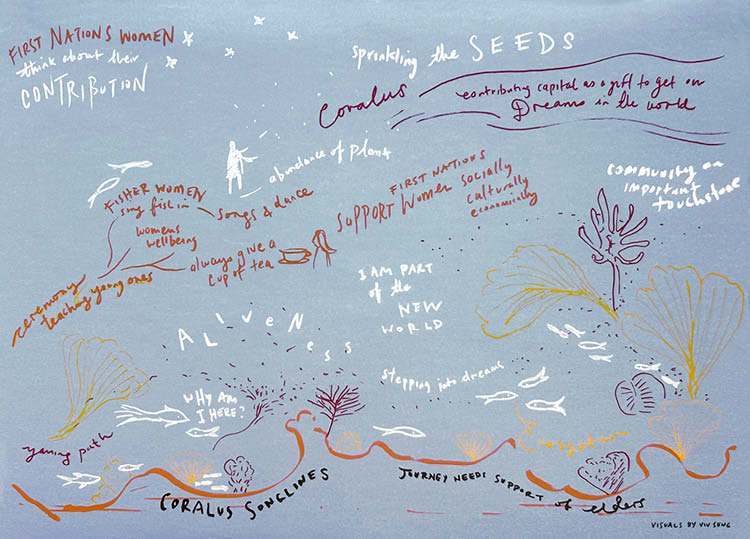 FIRST NATIONS WOMEN
think about their
CONTRIBUTION
sprinkling the SEEDS
Coralus
contributing capital as a gift to get our
Dreams in the world
abundance of plants
FISHER WOMEN
song fish in
songs & dance
womens
wellbeing
always give a
cup of tea
ceremony
teaching young ones
FIRST NATIONS
SUPPORT WOMEN SOCIALLY
culturally
economically
community an
important
touchstone
I AM PART
of the
NEW
WORLD
ALIVENESS
stepping into dreams
WHY AM
I HERE?
yarning path
Ecosystem
CORALUS SONGLINES
JOURNEY NEEDS SUPPORT of elders
VISUALS BY VIV SUNG